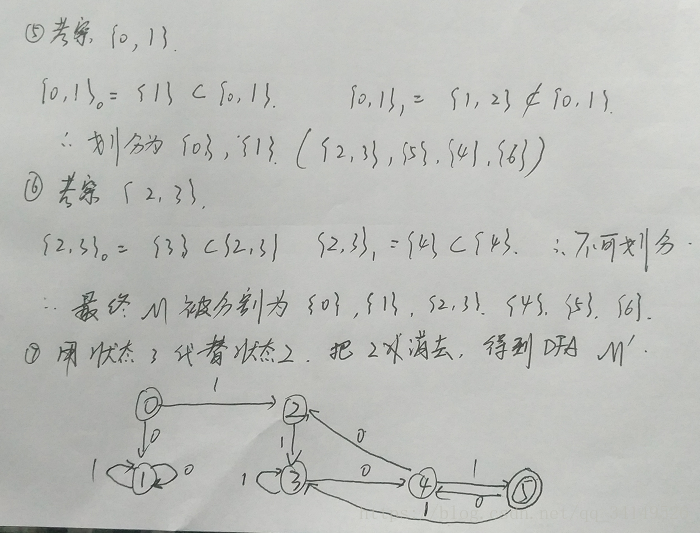 ⑤考察 {0,1}.
{0,1}₀ = {1} ⊂ {0,1}. {0,1}₁ = {1,2} ⊄ {0,1}.
∴ 划分为 {0}, {1}. ({2,3}, {5}, {4}, {6})
⑥考察 {2,3}.
{2,3}₀ = {3} ⊂ {2,3} {2,3}₁ = {4} ⊂ {4}. ∴ 不可划分.
∴ 最终 M 被分割为 {0}, {1}, {2,3}. {4}. {5}. {6}.
⑦ 用状态3代替状态2. 把2消去, 得到 DFA M'.
0 1 2
0 1 0
1 1 0 1 3 0 4 1 0 5
1